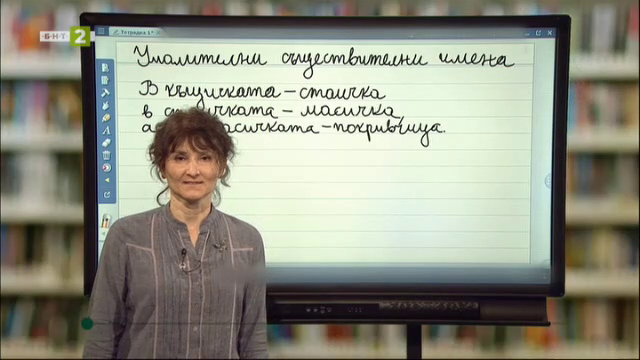 БНТ 2
Тетрадка 1
Умалителни съществителни имена
В къщичката – стаичка,
в стаичката – масичка,
а масичката – покривчица.